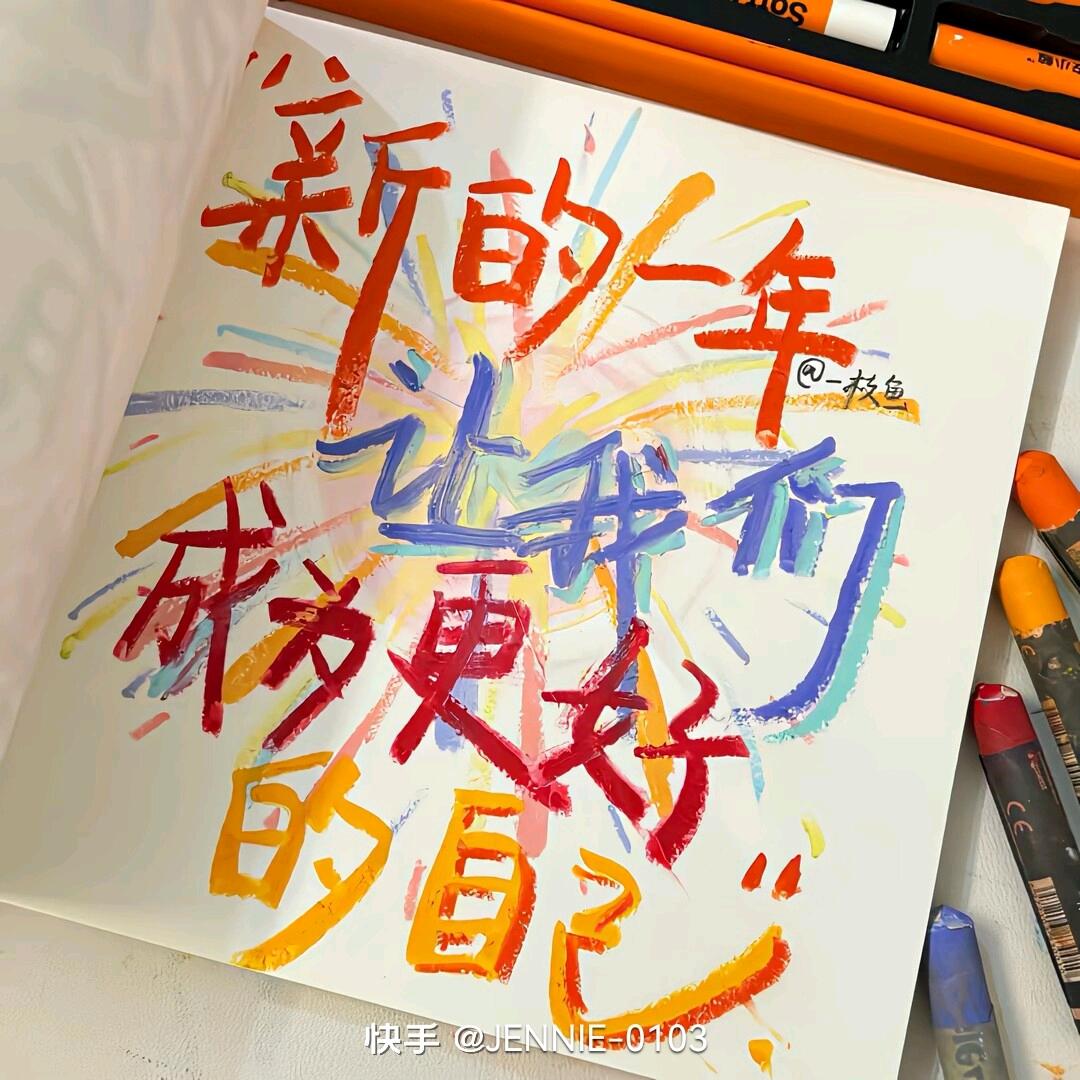 新的一年
@一枝鱼
让我们
成为更好
的自己
快手 @JENNIE-0103